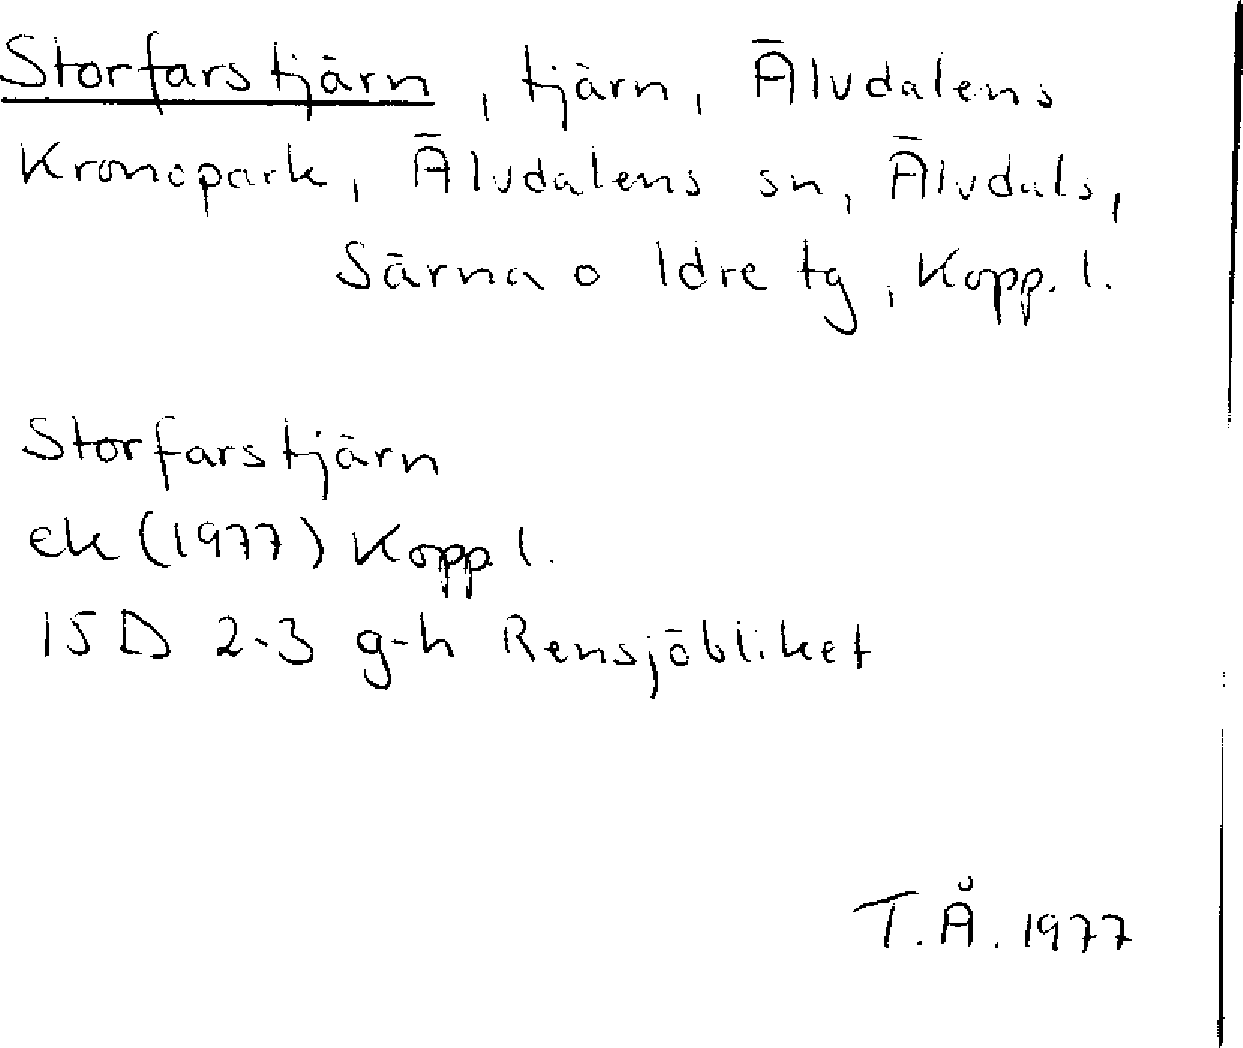 Storfarstjärn, tjärn, Älvdalens
Kronopark, Älvdalens sn, Älvdals,
Särna o Idre tg, Kopp. l.
Storfarstjärn
ek (1977) Kopp l.
15 D 2-3 g-h Rensjöbliket
T.Å. 1977